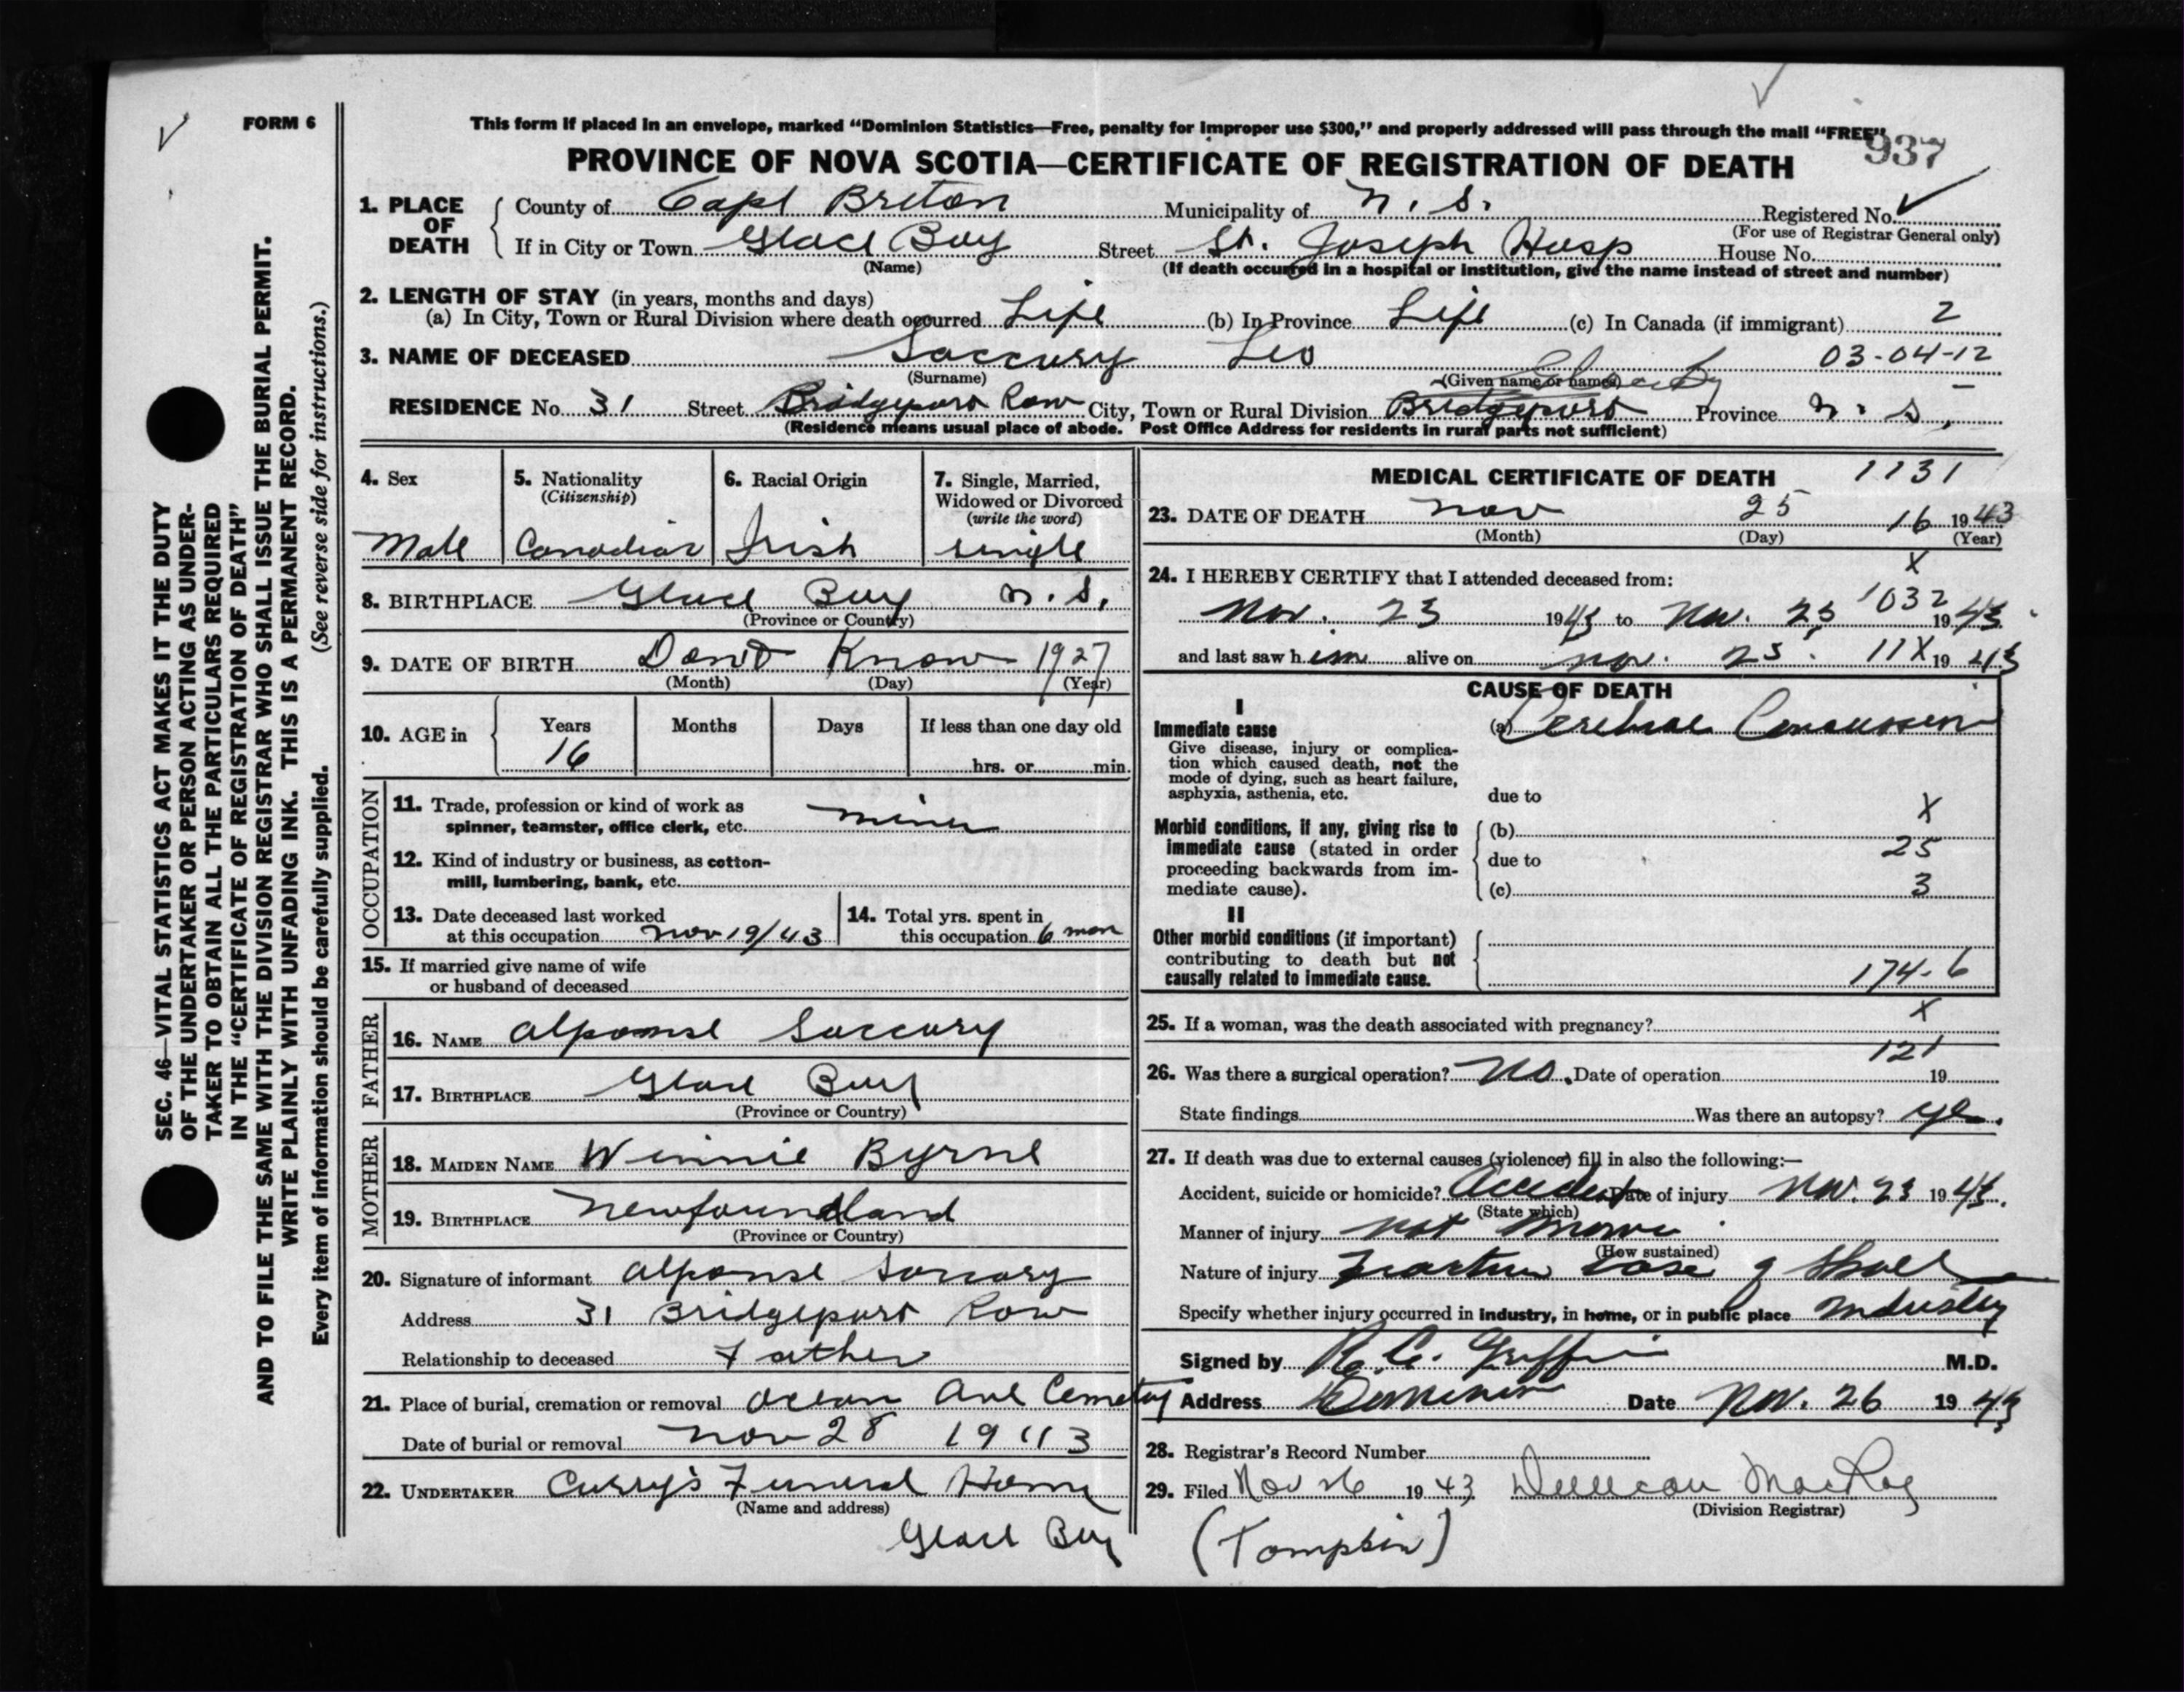 FORM 6
This form if placed in an envelope, marked “Dominion Statistics—Free, penalty for improper use $300,” and properly addressed will pass through the mail “FREE”
937
PROVINCE OF NOVA SCOTIA—CERTIFICATE OF REGISTRATION OF DEATH
1. PLACE OF DEATH County of Cape Breton Municipality of N. S. Registered No.
(For use of Registrar General only)
If in City or Town Glace Bay Street St. Joseph Hosp House No.
(Name) (If death occurred in a hospital or institution, give the name instead of street and number)
2. LENGTH OF STAY (in years, months and days)
(a) In City, Town or Rural Division where death occurred Life (b) In Province Life (c) In Canada (if immigrant) 2
3. NAME OF DECEASED Saccary Leo 03-04-12
(Surname) (Given name or names)
RESIDENCE No. 31 Street Bridgeport Row City, Town or Rural Division Bridgeport Province N. S.
(Residence means usual place of abode. Post Office Address for residents in rural parts not sufficient)
4. Sex Male
5. Nationality (Citizenship) Canadian
6. Racial Origin Irish
7. Single, Married, Widowed or Divorced (write the word) single
8. BIRTHPLACE Glace Bay N. S.
(Province or Country)
9. DATE OF BIRTH Dont Know 1927
(Month) (Day) (Year)
10. AGE in Years 16 Months Days If less than one day old
hrs. or min.
OCCUPATION
11. Trade, profession or kind of work as
spinner, teamster, office clerk, etc. miner
12. Kind of industry or business, as cotton-
mill, lumbering, bank, etc.
13. Date deceased last worked
at this occupation Nov 19/43
14. Total yrs. spent in
this occupation 6 mon
15. If married give name of wife
or husband of deceased
FATHER
16. NAME Alponse Saccary
17. BIRTHPLACE Glace Bay
(Province or Country)
MOTHER
18. MAIDEN NAME Winnie Byrne
19. BIRTHPLACE Newfoundland
(Province or Country)
20. Signature of informant Alponse Saccary
Address 31 Bridgeport Row
Relationship to deceased Father
21. Place of burial, cremation or removal Ocean Ave Cemetay
Date of burial or removal Nov 28 1943
22. UNDERTAKER Curry's Funeral Home
(Name and address)
Glace Bay
MEDICAL CERTIFICATE OF DEATH 1131
23. DATE OF DEATH Nov 25 16 1943
(Month) (Day) (Year)
X
24. I HEREBY CERTIFY that I attended deceased from:
1032
Nov. 23 1943 to Nov. 25 1943
and last saw him alive on Nov. 25. 11X 1943
CAUSE OF DEATH
I
Immediate cause (a) Cerebral Concussion
Give disease, injury or complica-
tion which caused death, not the
mode of dying, such as heart failure,
asphyxia, asthenia, etc.
due to
X
Morbid conditions, if any, giving rise to
immediate cause (stated in order
proceeding backwards from im-
mediate cause).
(b)
25
due to
(c) 3
II
Other morbid conditions (if important)
contributing to death but not
causally related to immediate cause.
174-6
X
25. If a woman, was the death associated with pregnancy?
121
26. Was there a surgical operation? No. Date of operation 19
State findings Was there an autopsy? yes.
27. If death was due to external causes (violence) fill in also the following:—
Accident, suicide or homicide? Accident Date of injury Nov. 23 1943.
(State which)
Manner of injury not known
(How sustained)
Nature of injury Fracture base of Skull
Specify whether injury occurred in industry, in home, or in public place Industry
Signed by R. C. Griffin M.D.
Address Dominion Date Nov. 26 1943
28. Registrar's Record Number
29. Filed Nov 26 1943 Duncan MacKay
(Division Registrar)
(Tompkin)
SEC. 46—VITAL STATISTICS ACT MAKES IT THE DUTY
OF THE UNDERTAKER OR PERSON ACTING AS UNDER-
TAKER TO OBTAIN ALL THE PARTICULARS REQUIRED
IN THE “CERTIFICATE OF REGISTRATION OF DEATH”
AND TO FILE THE SAME WITH THE DIVISION REGISTRAR WHO SHALL ISSUE THE BURIAL PERMIT.
WRITE PLAINLY WITH UNFADING INK. THIS IS A PERMANENT RECORD.
Every item of information should be carefully supplied. (See reverse side for instructions.)